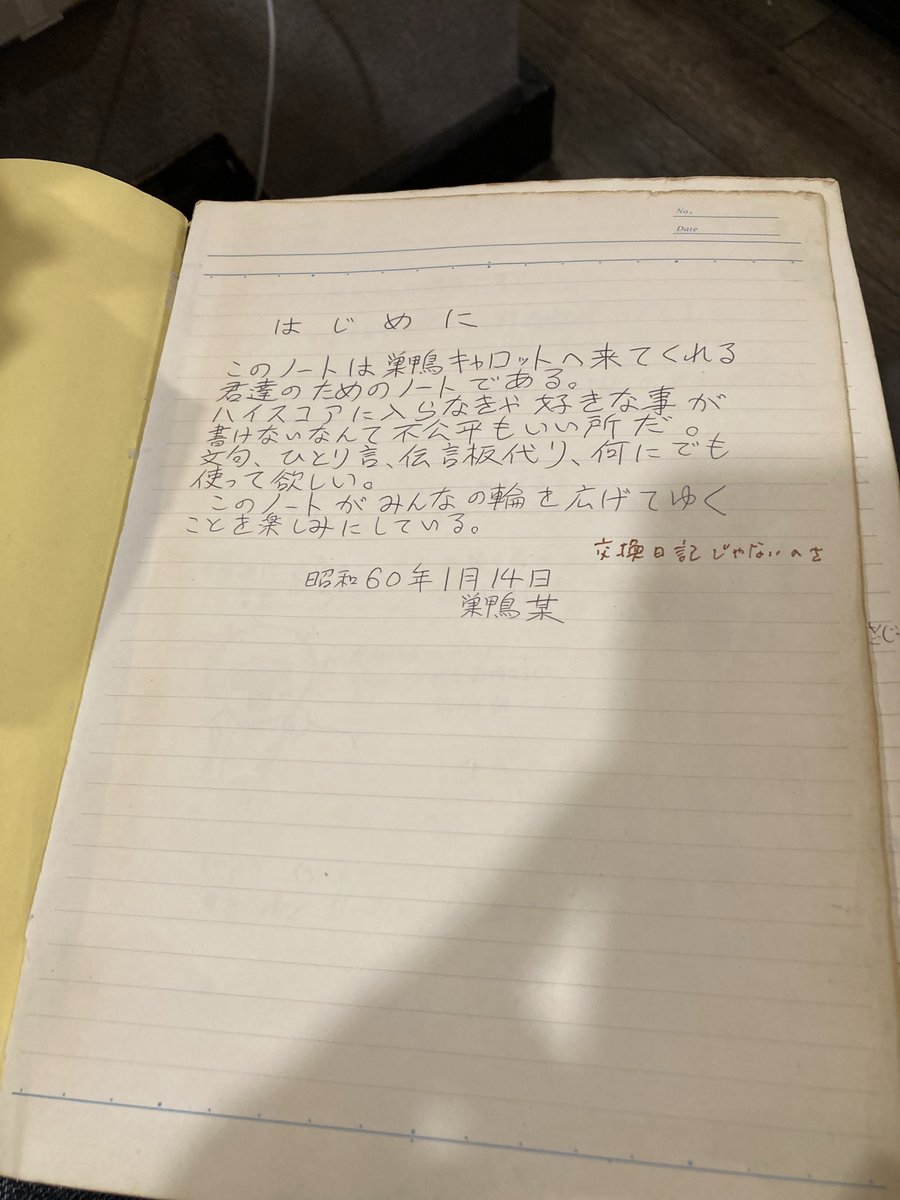 No.
Date
はじめに
このノートは巣鴨キャロットへ来てくれる
君達のためのノートである。
ハイスコアに入らなきゃ好きな事が
書けないなんて不公平もいい所だ。
文句、ひとり言、伝言板代り、何にでも
使って欲しい。
このノートがみんなの輪を広げてゆく
ことを楽しみにしている。
交換日記じゃないのさ
昭和60年1月14日
巣鴨某